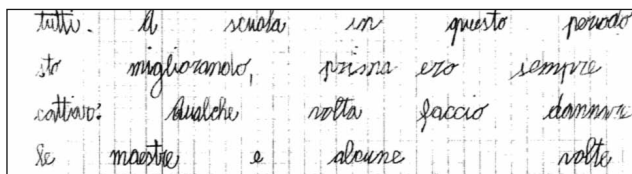 tutti. A scuola in questo periodo
sto migliorando, prima ero sempre
cattivo: Qualche volta faccio dannare
le maestre e alcune volte